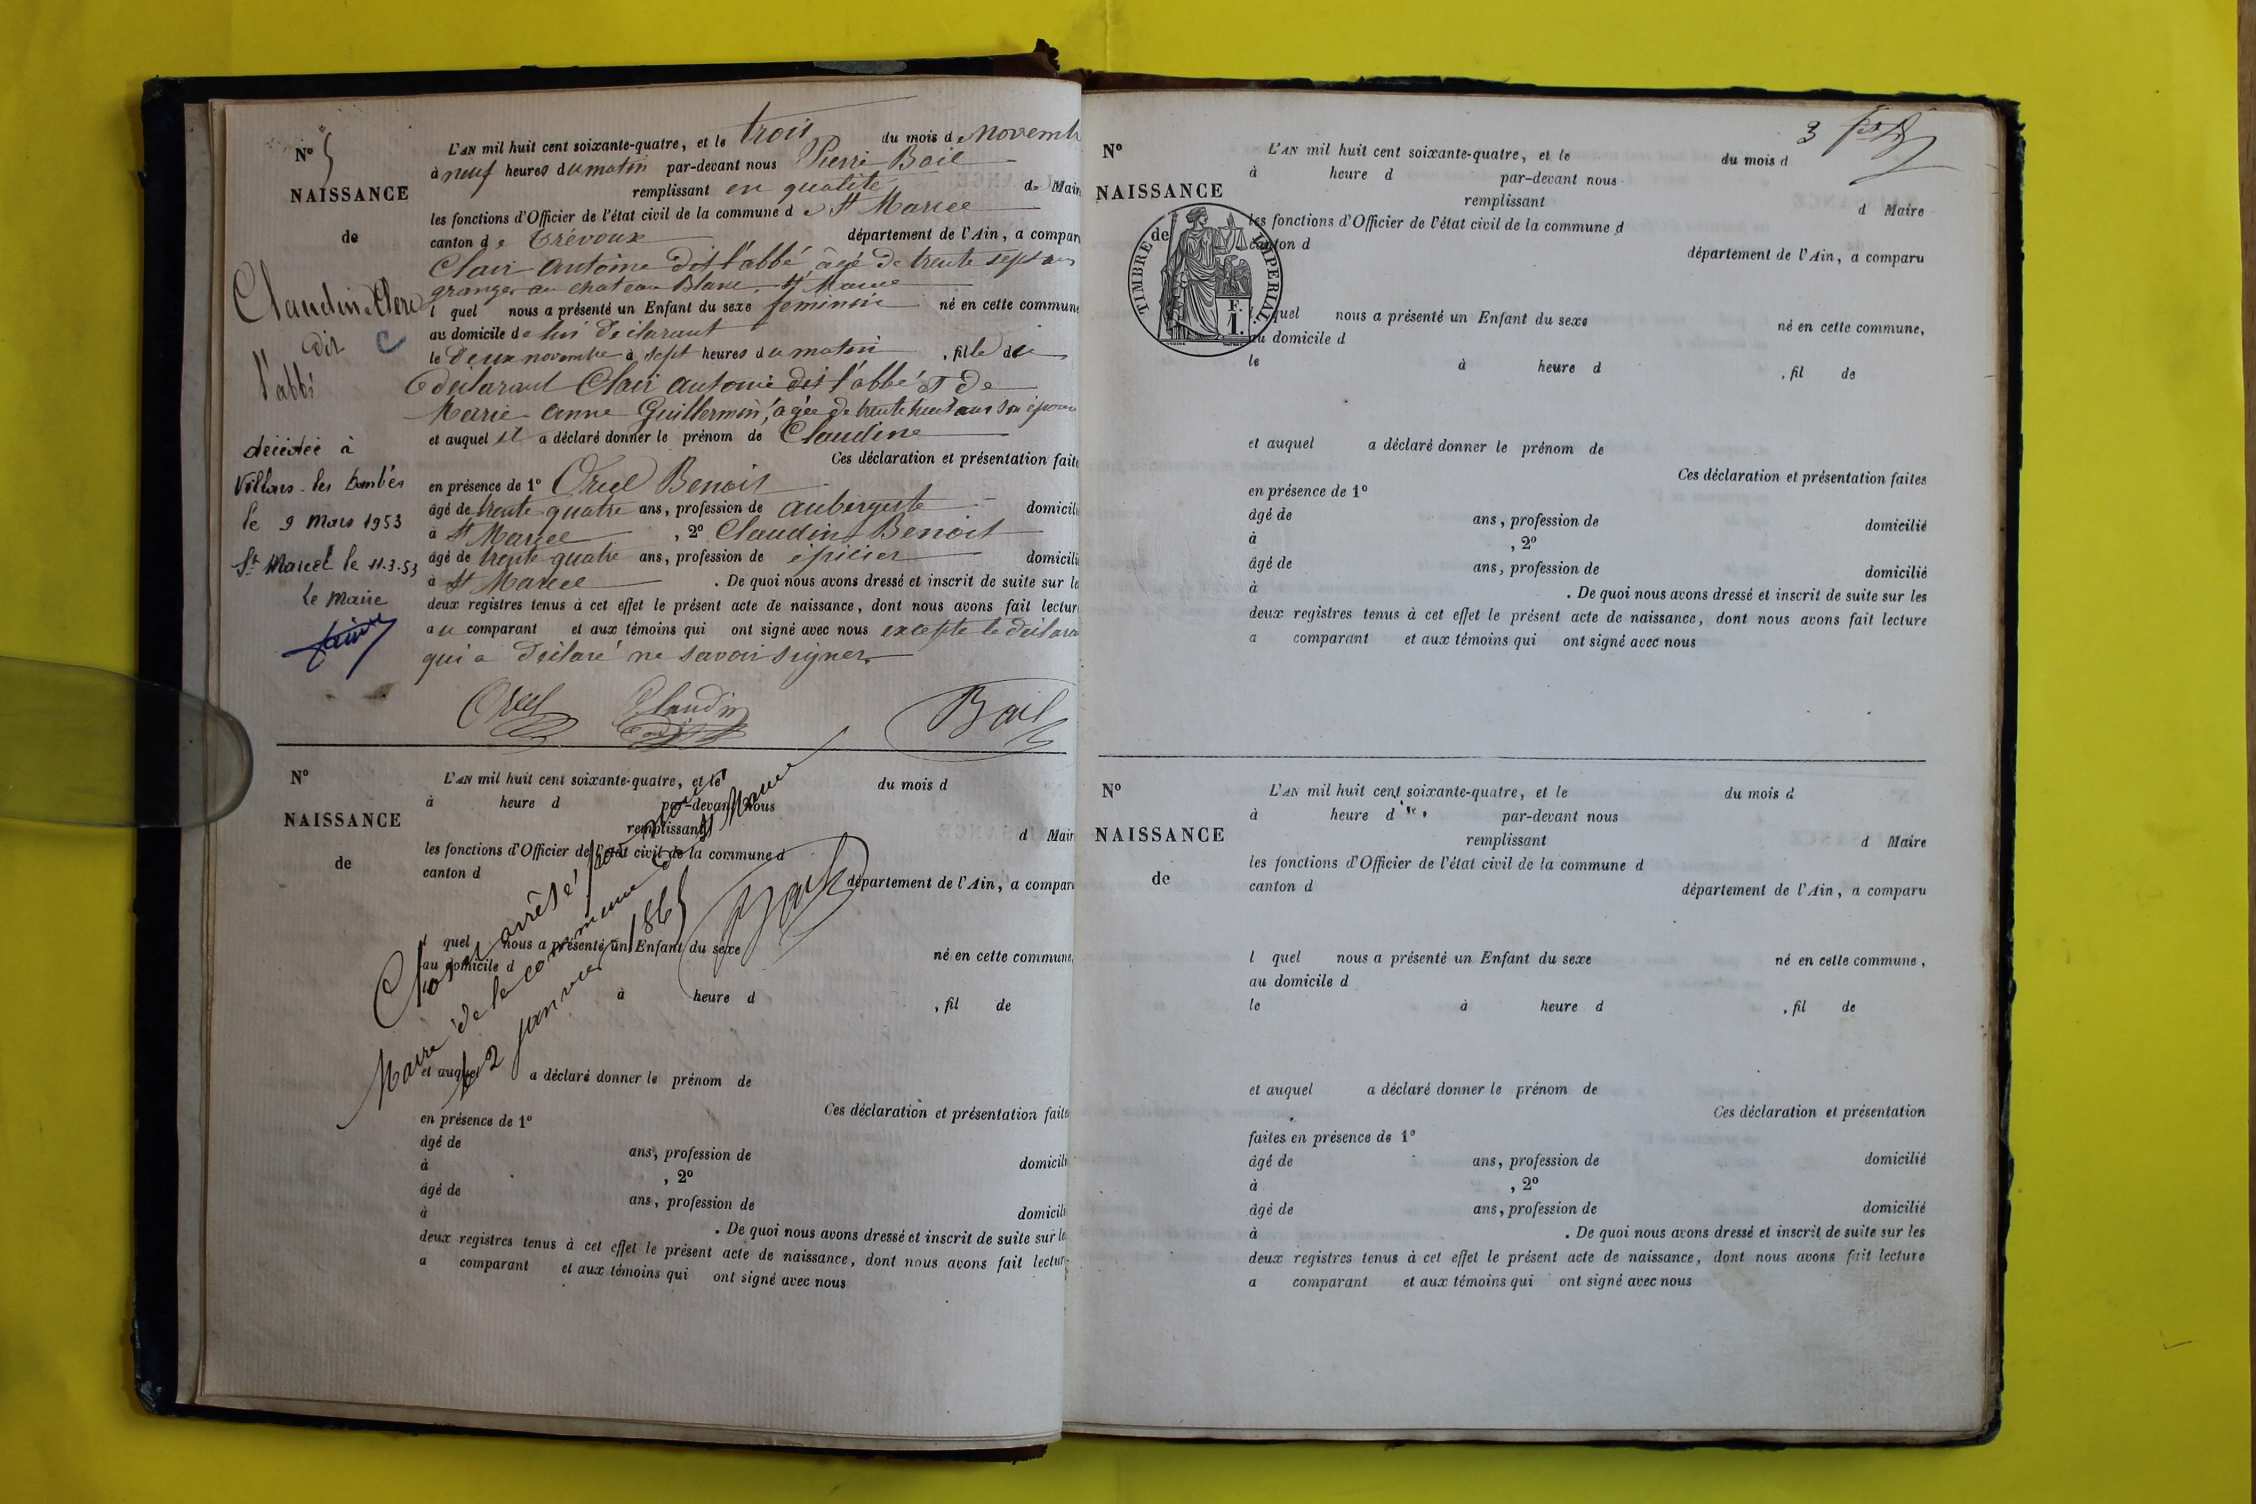 N° 5
NAISSANCE
de
Claudine Clerc
dit
l'abbé
C
décédée à
Villars-les Dombes
le 9 Mars 1953
St Marcel le 11.3.53
le Maire
L'AN mil huit cent soixante-quatre, et le trois du mois de novemb
à neuf heures du matin par-devant nous Pierre Bail
remplissant en qualité de Mair
les fonctions d'Officier de l'état civil de la commune de St Marcel
canton de Trévoux département de l'Ain, a compar
Clair antoine dit l'abbé âgé de trente sept ans
granger au chateau Blanc St Marcel
l quel nous a présenté un Enfant du sexe feminin né en cette commune
au domicile de lui declarant
le deux novembre à sept heures du matin , fille de
declarant Clair antoine dit l'abbé et de
Marie anne Guillermin, agée de trente huit ans son épouse
et auquel il a déclaré donner le prénom de Claudine
Ces déclaration et présentation faite
en présence de 1° Orcel Benoit
âgé de trente quatre ans, profession de aubergiste domicili
à St Marcel , 2° Claudin Benoit
âgé de trente quatre ans, profession de épicier domicili
à St Marcel . De quoi nous avons dressé et inscrit de suite sur le
deux registres tenus à cet effet le présent acte de naissance, dont nous avons fait lectur
au comparant et aux témoins qui ont signé avec nous excepté le déclara
qui a déclaré ne savoir signer.
Orcel Claudin Bail
N°
NAISSANCE
de
L'AN mil huit cent soixante-quatre, et le du mois d
à heure d par-devant nous
remplissant d Mair
les fonctions d'Officier de l'état civil de la commune d
canton d
département de l'Ain, a compar
l quel nous a présenté un Enfant du sexe né en cette commune
au domicile d
à heure d , fil de
et auquel a déclaré donner le prénom de
Ces déclaration et présentation faite
en présence de 1°
âgé de ans, profession de domicili
à , 2°
âgé de ans, profession de domicili
à . De quoi nous avons dressé et inscrit de suite sur le
deux registres tenus à cet effet le présent acte de naissance, dont nous avons fait lectur
a comparant et aux témoins qui ont signé avec nous
Clos et arrêté par nous
Maire de la commune de St Marcel
le 2 janvier 1865
Bail
3
N°
NAISSANCE
de
TIMBRE IMPERIAL
F.
1.
L'AN mil huit cent soixante-quatre, et le du mois d
à heure d par-devant nous
remplissant d Maire
les fonctions d'Officier de l'état civil de la commune d
canton d
département de l'Ain, a comparu
l quel nous a présenté un Enfant du sexe né en cette commune,
au domicile d
le à heure d , fil de
et auquel a déclaré donner le prénom de
Ces déclaration et présentation faites
en présence de 1°
âgé de ans, profession de domicilié
à , 2°
âgé de ans, profession de domicilié
à . De quoi nous avons dressé et inscrit de suite sur les
deux registres tenus à cet effet le présent acte de naissance, dont nous avons fait lecture
a comparant et aux témoins qui ont signé avec nous
N°
NAISSANCE
de
L'AN mil huit cent soixante-quatre, et le du mois d
à heure d par-devant nous
remplissant d Maire
les fonctions d'Officier de l'état civil de la commune d
canton d
département de l'Ain, a comparu
l quel nous a présenté un Enfant du sexe né en cette commune,
au domicile d
le à heure d , fil de
et auquel a déclaré donner le prénom de
Ces déclaration et présentation
faites en présence de 1°
âgé de ans, profession de domicilié
à , 2°
âgé de ans, profession de domicilié
à . De quoi nous avons dressé et inscrit de suite sur les
deux registres tenus à cet effet le présent acte de naissance, dont nous avons fait lecture
a comparant et aux témoins qui ont signé avec nous